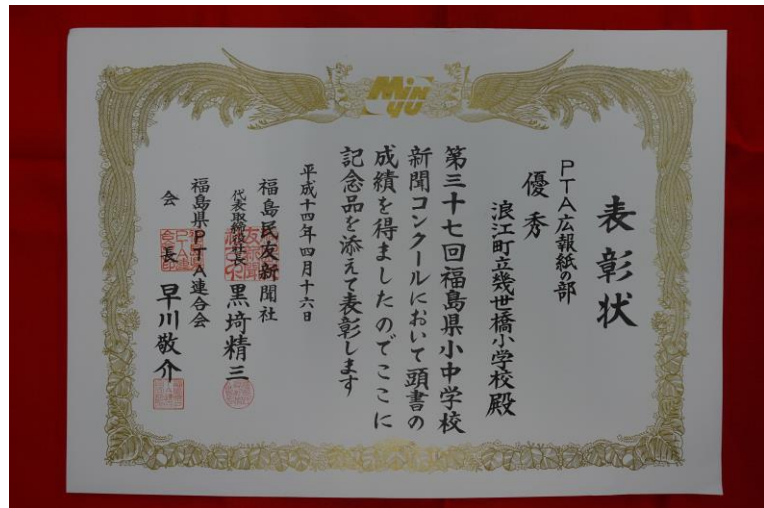 MiNYU
表彰状
PTA広報紙の部
優秀
浪江町立幾世橋小学校殿
第三十七回福島県小中学校
新聞コンクールにおいて頭書の
成績を得ましたのでここに
記念品を添えて表彰します
平成十四年四月十六日
福島民友新聞社
代表取締役社長 黒埼精三
福島県PTA連合会
会長 早川敬介